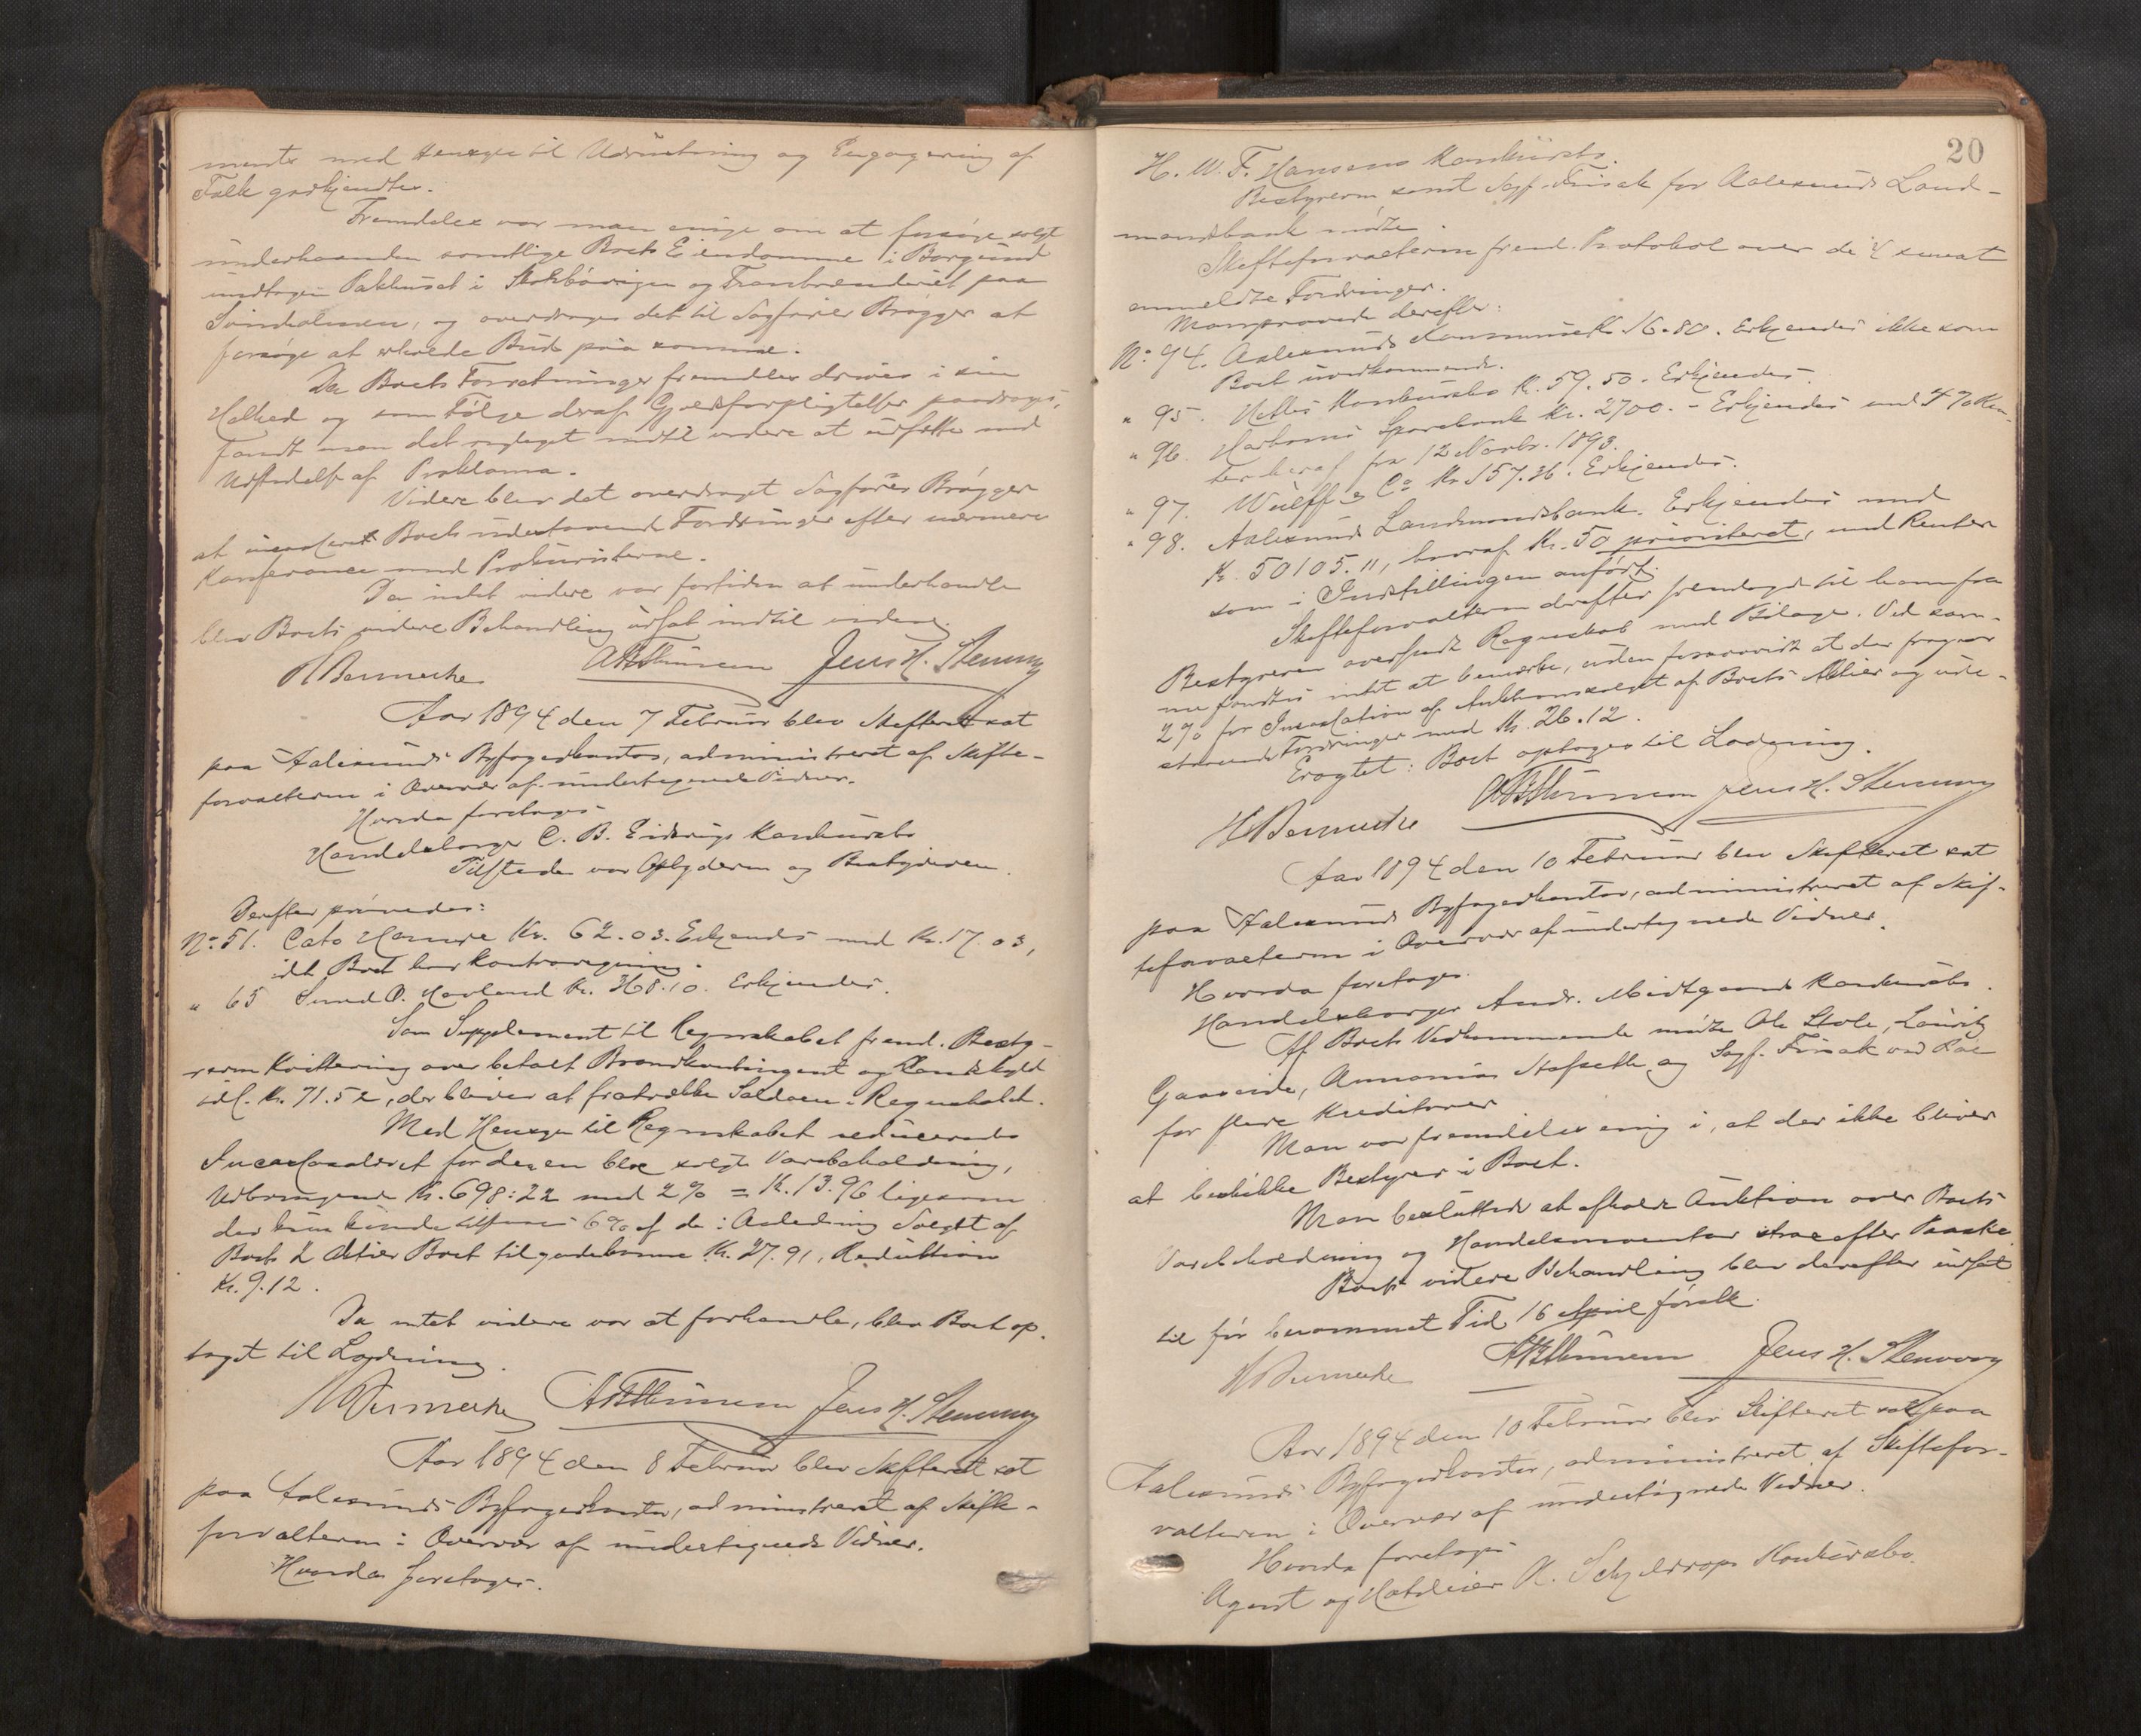 mente med Hensyn til Udrustning og Engagering af
Folk godkjendtes.
Fremdeles var man enige om at forsøge solgt
underhaanden samtlige Boets Eiendomme i Borgund
undtagen Pakhuset i og Tranbrænderiet paa
og overdroges det til Sagfører Brøgger at
forsøge at erholde Bud paa samme.
Da Boets Forretninger fremdeles drives i sin
Helhed og som Følge deraf Gjeldsforpligtelser paadrages,
fandt man det indtil videre at udsætte med
Udstedelse af Proklama.
Videre blev det overdraget Sagfører Brøgger
at incassere Boets udestaaende Fordringer efter nærmere
Konferance med Prokuristerne.
Da intet videre var fortiden at underhandle
blev Boets videre Behandling udsat indtil videre.
Jens H. Stenvaag
Aar 1894 den 7 Februar blev Skifteret sat
paa Aalesunds Byfogedkontor, administreret af Skifte-
forvalteren i Overvær af undertegnede Vidner.
Hvorda foretages
Handelsborger C. B. Konkursbo
Tilstede var og Bestyreren.
Derefter prøvedes:
No. 51. Cato Kr. 62.03. Erkjendes med Kr. 17.03,
idet Boet har Kontraregning.
" 65 Kr. 368.10. Erkjendes.
Som Supplement til Regnskabet freml. Besty-
reren Kvittering over betalt Brandkontingent og
Kr. 71.52, der bliver at fratrække Saldoen i Regnskabet.
Med Hensyn til Regnskabet reduceredes
Incassosalæret for den en bloc solgte Varebeholdning,
Udbringende Kr. 698:22 med 2% = Kr. 13.96 ligesom
der kun kunde 6% af de i Anledning Salget af
Boets 2 Aktier Boet tilgodekomne Kr. 27.91, Reduktion
Kr. 9.12.
Da intet videre var at forhandle, blev Boet op-
taget til Lodning.
Jens H. Stenvaag
Aar 1894 den 8 Februar blev Skifteret sat
paa Aalesunds Byfogedkontor, administreret af Skifte-
forvalteren i Overvær af undertegnede Vidner.
Hvorda foretoges.
20
H. W. F. Hansens Konkursbo.
Bestyreren samt Sagf. Finsak for Aalesunds Land-
mandsbank mødte.
Skifteforvalteren freml. Protokol over de senest
anmeldte Fordringer.
Man prøvede derefter:
No. 94. Aalesunds Kommune Kr. 16.80. Erkjendes ikke som
Boet uvedkommende.
" 95. Konkursbo Kr. 59.50. Erkjendes.
" 96. Sparebank Kr. 2700. - Erkjendes med Ren-
ter heraf fra 12 Novbr. 1893.
" 97. Wulff & Co Kr 157.36. Erkjendes.
" 98. Aalesunds Landmandsbank. Erkjendes med
Kr. 50105.11, hvoraf Kr. 50 prioriteret, med Renter
som i Indstillingen anført.
Skifteforvalteren derefter fremlagde til ham fra
Bestyreren oversendt Regnskab med Bilage. Ved sam-
me fandtes intet at bemærke, uden forsaavidt at der fragaar
2% for Incassation af Auktionssalget af Boets Aktier og ude-
staaende Fordringer med Kr. 26.12.
Eragtet: Boet optages til Lodning.
Jens H. Stenvaag
Aar 1894 den 10 Februar blev Skifteret sat
paa Aalesunds Byfogedkontor, administreret af Skif-
teforvalteren i Overvær af undertegnede Vidner.
Hvorda foretages.
Handelsborger Andr. Midtgaards Konkursbo.
Af Boets Vedkommende mødte Ole Lauritz
og Sagf. Finsak
for flere Kreditorer
Man var fremdeles enig i, at der ikke bliver
at beskikke Bestyrer i Boet.
Man besluttede at afholde Auktion over Boets
Varebeholdning og Handelsinventar strax efter Paaske.
Boets videre Behandling blev derefter udsat
til før berammet Tid 16 April førstk.
Jens H. Stenvaag
Aar 1894 den 10 Februar blev Skifteret sat paa
Aalesunds Byfogedkontor, administreret af Skiftefor-
valteren i Overvær af undertegnede Vidner.
Hvorda foretages
Agent og Hoteleier K. Schjelderops Konkursbo.